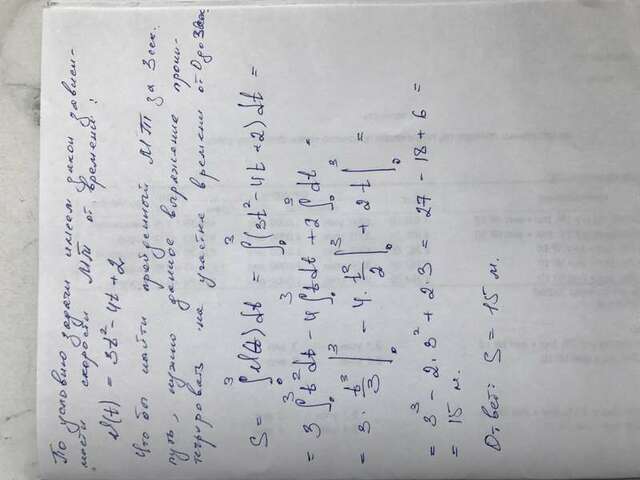 По условию задачи имеем закон зависи-
мости скорости МТ от времени:
v(t) = 3t² - 4t + 2
Что бы найти пройденный МТ за 3 сек.
путь, нужно данное выражение проин-
тегрировать на участке времени от 0 до 3 сек.
S = ∫₀³ v(t) dt = ∫₀³ (3t² - 4t + 2) dt =
= 3 ∫₀³ t² dt - 4 ∫₀³ t dt + 2 ∫₀³ dt =
= 3 · t³/3 |₀³ - 4 · t²/2 |₀³ + 2t |₀³ =
= 3³ - 2 · 3² + 2 · 3 = 27 - 18 + 6 =
= 15 м.
Ответ: S = 15 м.